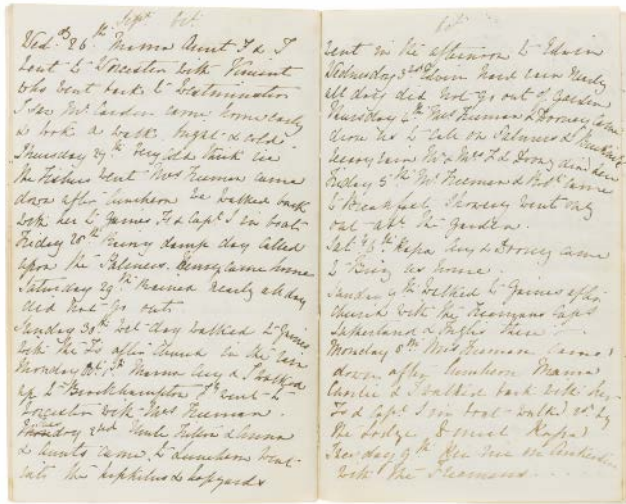 Sept. Oct.
Wed. 26th Mama Aunt F & I
went to Worcester with Vincent
who went back to Westminster
I saw Mr Carden came home early
& took a walk. Bright & cold
Thursday 27th Very cold thick ice
the Fishers went Mrs Freeman came
down after luncheon we walked back
with her to Gaines Fs & Capt S in boat
Friday 28th Rainy damp day called
upon the Palmers. Henry came home
Saturday 29th Rained nearly all day
did not go out
Sunday 30th Wet day walked to Gaines
with the Fs after Church in the rain
Monday Oct 1st Mama Aug & I walked
up to Brockhampton went to
Worcester with Mrs Freeman.
2nd Uncle & Anna
& Aunts came to luncheon Went
into the hopkilns & hopyards
Oct
went in the afternoon to Edwin
Wednesday 3rd Edwin Hard rain nearly
all day did not go out of garden
Thursday 4th Mrs Freeman & Dorney came
drove us to call on Palmers &
Heavy rain Mr & Mrs F & Dorney dined here
Friday 5th Mr Freeman & Robt came
to Breakfast, Showery Went only
out abt the Garden.
Sat 6th Papa Aug & Dorney came
to Bring us home.
Sunday 7th Walked to Gaines after
church with the Freemans Capts
Sutherland & Inglis there
Monday 8th Mrs Freeman came
down after luncheon Mama
Charlie & I walked back with her
Fs & Capt S in boat walked by
the Lodge & met Papa
Tuesday 9th
with the Freemans